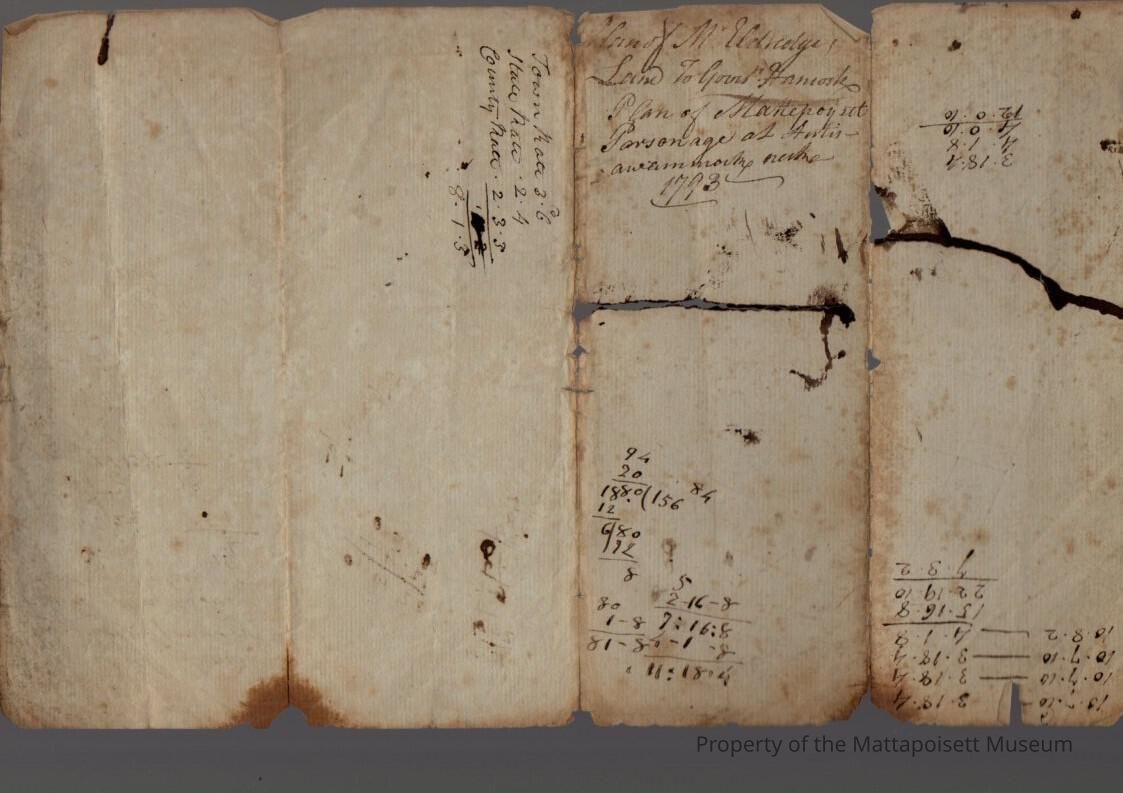 Town Rate 3.6
State Rate 2.4
County Rate 2.3.3
8.1.3
Plan of Mr Eldredges
Land To Govr Hancock
Plan of Mattepoysett
Parsonage at
neck
1793
94
20
1880(156 84
12
6|80
72
8
5
80 2-16-8
1-8 7:16:8
81-8 -1-8
11:18:4
3.18.4
4.1.8
4.0.10
12.0.10
10.7.10 - 3.18.4
10.7.10 — 3.18.4
10.7.10 — 3.18.4
10.8.2 — 4.1.8
15.16.8
22.19.10
7.3.2
Property of the Mattapoisett Museum